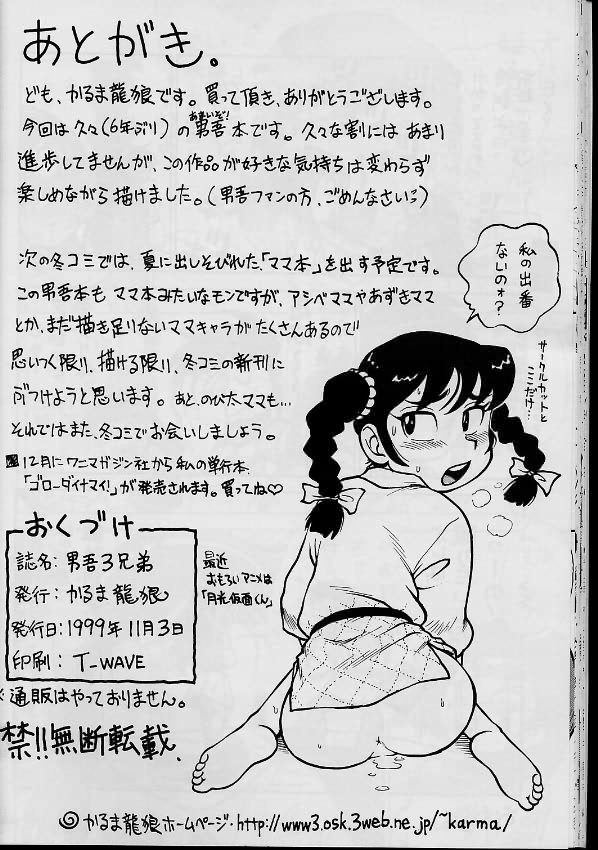 あとがき。
ども、かるま龍狼です。買って頂き、ありがとうございます。
今回は久々(6年ぶり)の男吾本です。久々な割にはあまり
進歩してませんが、この作品が好きな気持ちは変わらず
楽しめながら描けました。(男吾ファンの方、ごめんなさいっ)
次の冬コミでは、夏に出しそびれた「ママ本」を出す予定です。
この男吾本もママ本みたいなモンですが、アシベママやあずきママ
とか、まだ描き足りないママキャラがたくさんあるので
思いつく限り、描ける限り、冬コミの新刊に
ぶつけようと思います。あと、のび太ママも…
それではまた、冬コミでお会いしましょう。
12月にワニマガジン社から私の単行本、
「ゴローダイナマイ!」が発売されます。買ってね♡
私の出番
ないのォ?
サークルカットと
ここだけ…
おくづけ
誌名:男吾3兄弟
発行:かるま龍狼
発行日:1999年11月3日
印刷:T-WAVE
最近
おもろいアニメは
「月光仮面くん」
※通販はやっておりません。
禁!!無断転載.
かるま龍狼ホームページ・http://www3.osk.3web.ne.jp/~karma/